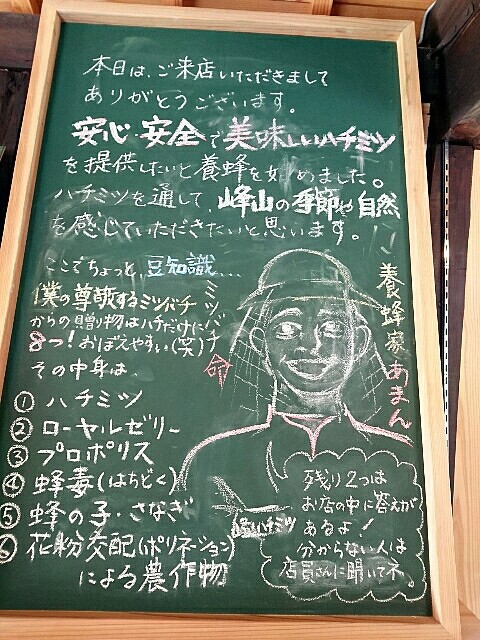 本日は、ご来店いただきまして
ありがとうございます。
安心・安全で美味しいハチミツ
を提供したいと養蜂を始めました。
ハチミツを通して、峰山の季節や自然
を感じていただきたいと思います。
ここでちょっと、豆知識...
僕の尊敬するミツバチ
からの贈り物はハチだけに
8つ!おぼえやすい(笑)
その中身は、
① ハチミツ
② ローヤルゼリー
③ プロポリス
④ 蜂毒(はちどく)
⑤ 蜂の子・さなぎ
⑥ 花粉交配(ポリネーション)
による農作物
ミツバチ命
養蜂家あまん
残り2つは
お店の中に答えが
あるよ!
分からない人は
店員さんに聞いてネ。